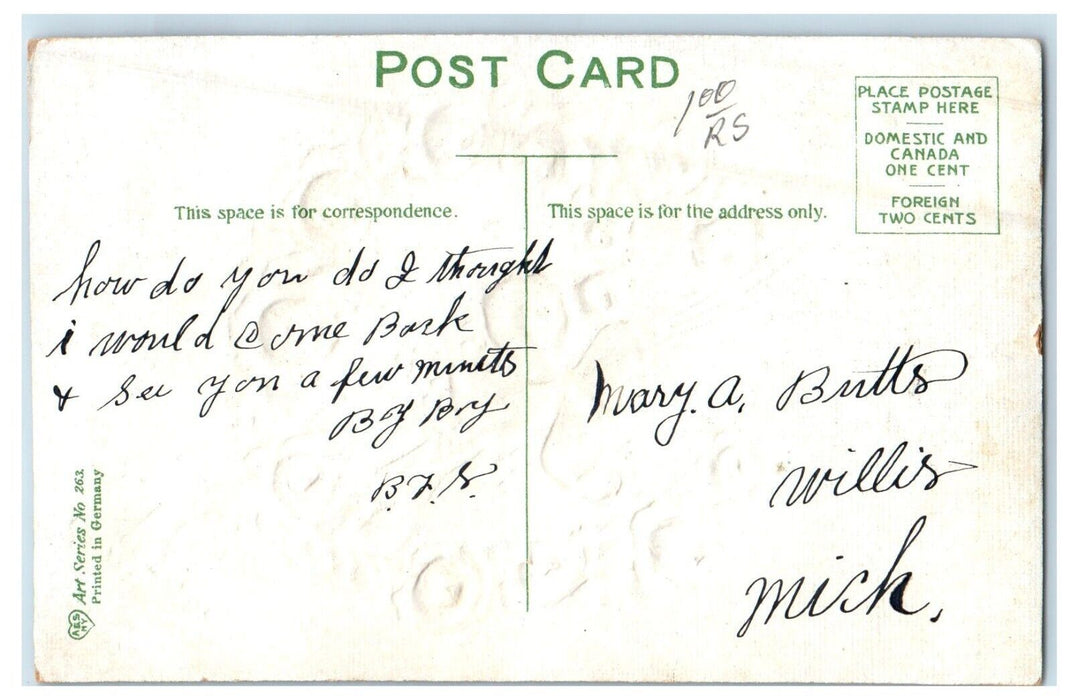 POST CARD
1 00
RS
PLACE POSTAGE
STAMP HERE
DOMESTIC AND
CANADA
ONE CENT
FOREIGN
TWO CENTS
This space is for correspondence.
This space is for the address only.
how do you do I thought
i would Come Back
& See you a few minits
By Boy
B.F.S.
Mary. A. Butts
Willis
Mich.
Art Series No 263.
Printed in Germany
A&S
NY